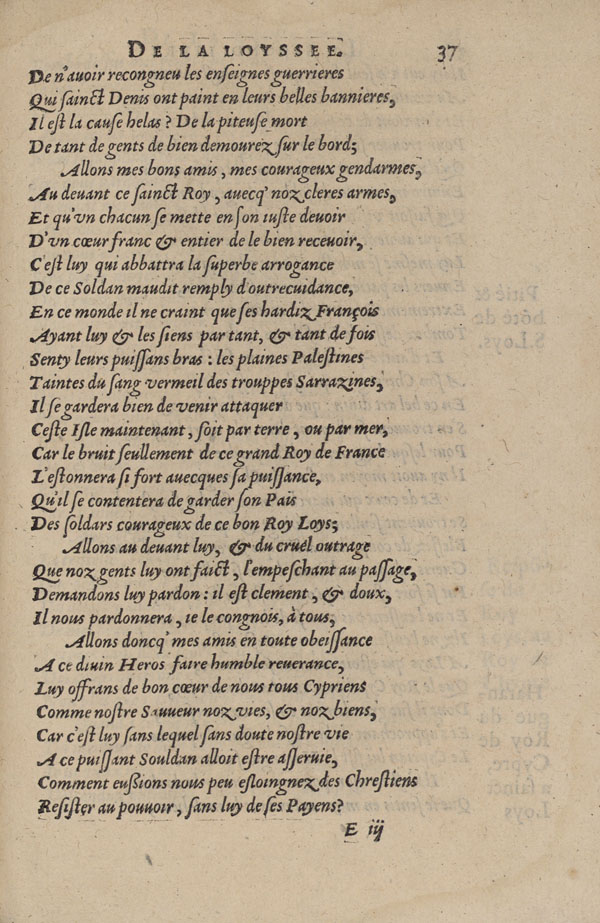 DE LA LOYSSEE. 37
De n'auoir recongneu les enseignes guerrieres
Qui sainct Denis ont paint en leurs belles bannieres,
Il est la cause helas? De la piteuse mort
De tant de gents de bien demourez sur le bord;
Allons mes bons amis, mes courageux gendarmes,
Au deuant ce sainct Roy, auecq' noz cleres armes,
Et qu'vn chacun se mette en son iuste deuoir
D'vn cœur franc & entier de le bien receuoir,
C'est luy qui abbattra la superbe arrogance
De ce Soldan maudit remply d'outrecuidance,
En ce monde il ne craint que ses hardiz François
Ayant luy & les siens par tant, & tant de fois
Senty leurs puissans bras : les plaines Palestines
Taintes du sang vermeil des trouppes Sarrazines,
Il se gardera bien de venir attaquer
Ceste Isle maintenant, soit par terre, ou par mer,
Car le bruit seullement de ce grand Roy de France
L'estonnera si fort auecques sa puissance,
Qu'il se contentera de garder son Païs
Des soldars courageux de ce bon Roy Loys;
Allons au deuant luy, & du cruel outrage
Que noz gents luy ont faict, l'empeschant au passage,
Demandons luy pardon : il est clement, & doux,
Il nous pardonnera, ie le congnois, à tous,
Allons doncq' mes amis en toute obeissance
A ce diuin Heros faire humble reuerance,
Luy offrans de bon cœur de nous tous Cypriens
Comme nostre Sauueur noz vies, & noz biens,
Car c'est luy sans lequel sans doute nostre vie
A ce puissant Souldan alloit estre asseruie,
Comment eussions nous peu esloingnez des Chrestiens
Resister au pouuoir, sans luy de ses Payens?
E iij